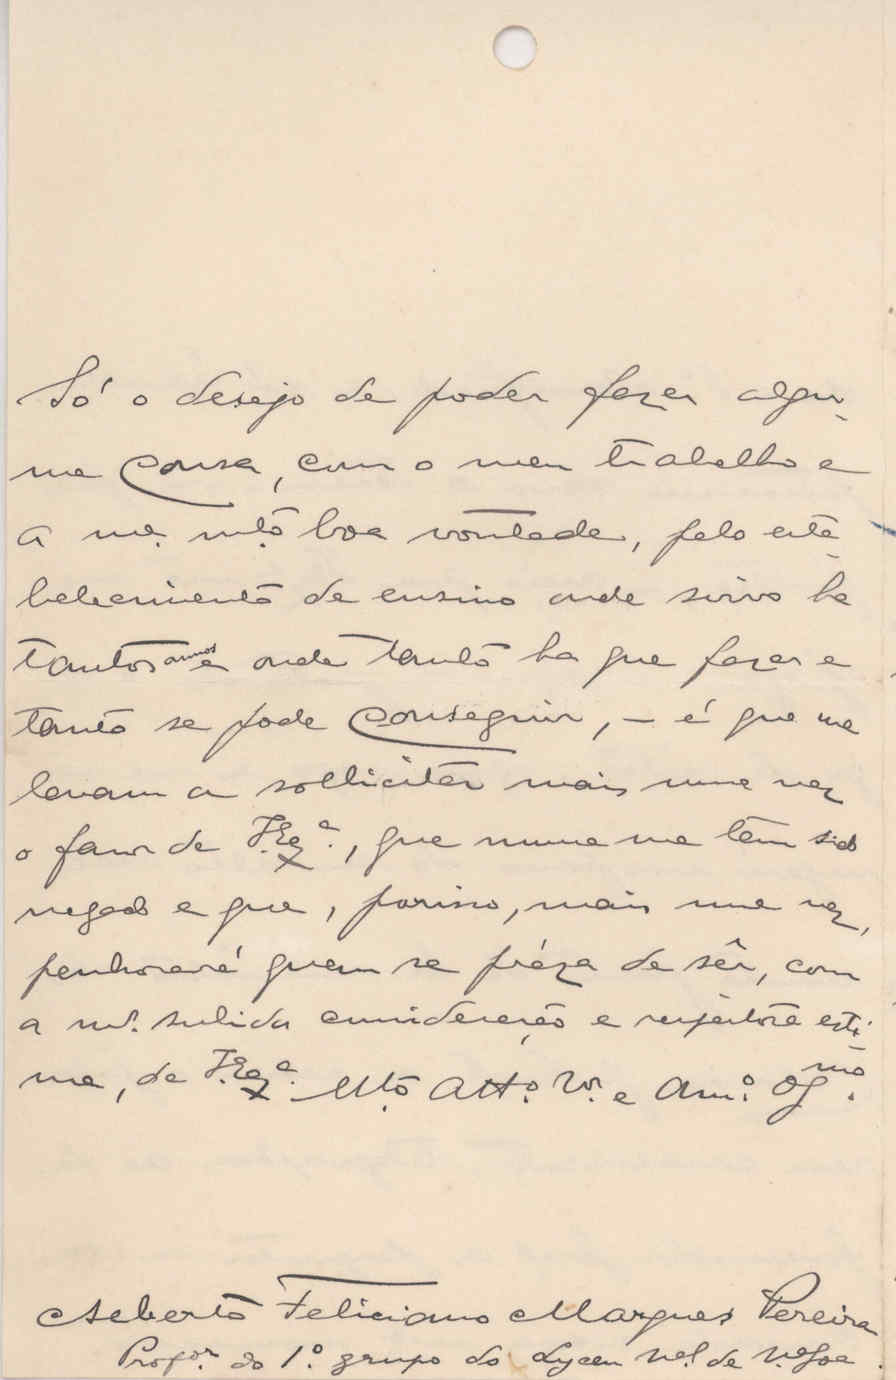 Só o desejo de poder fazer algu-
ma cousa, com o meu trabalho e
a mª. mtº boa vontade, pelo esta-
belecimento de ensino onde sirvo ha
tantos annos e onde tanto ha que fazer e
tanto se pode conseguir, — é que me
levam a sollicitar mais uma vez
o favor de V. Exª., que nunca me tem sido
negado e que, porisso, mais uma vez,
penhorará quem se préza de sêr, com
a mª. subida consideração e respeitosa esti-
ma, de V. Exª. Mtº Attº. Vor. e Amº. Obgmo.
Alberto Feliciano Marques Pereira
Profor. do 1º. grupo do Lyceu de